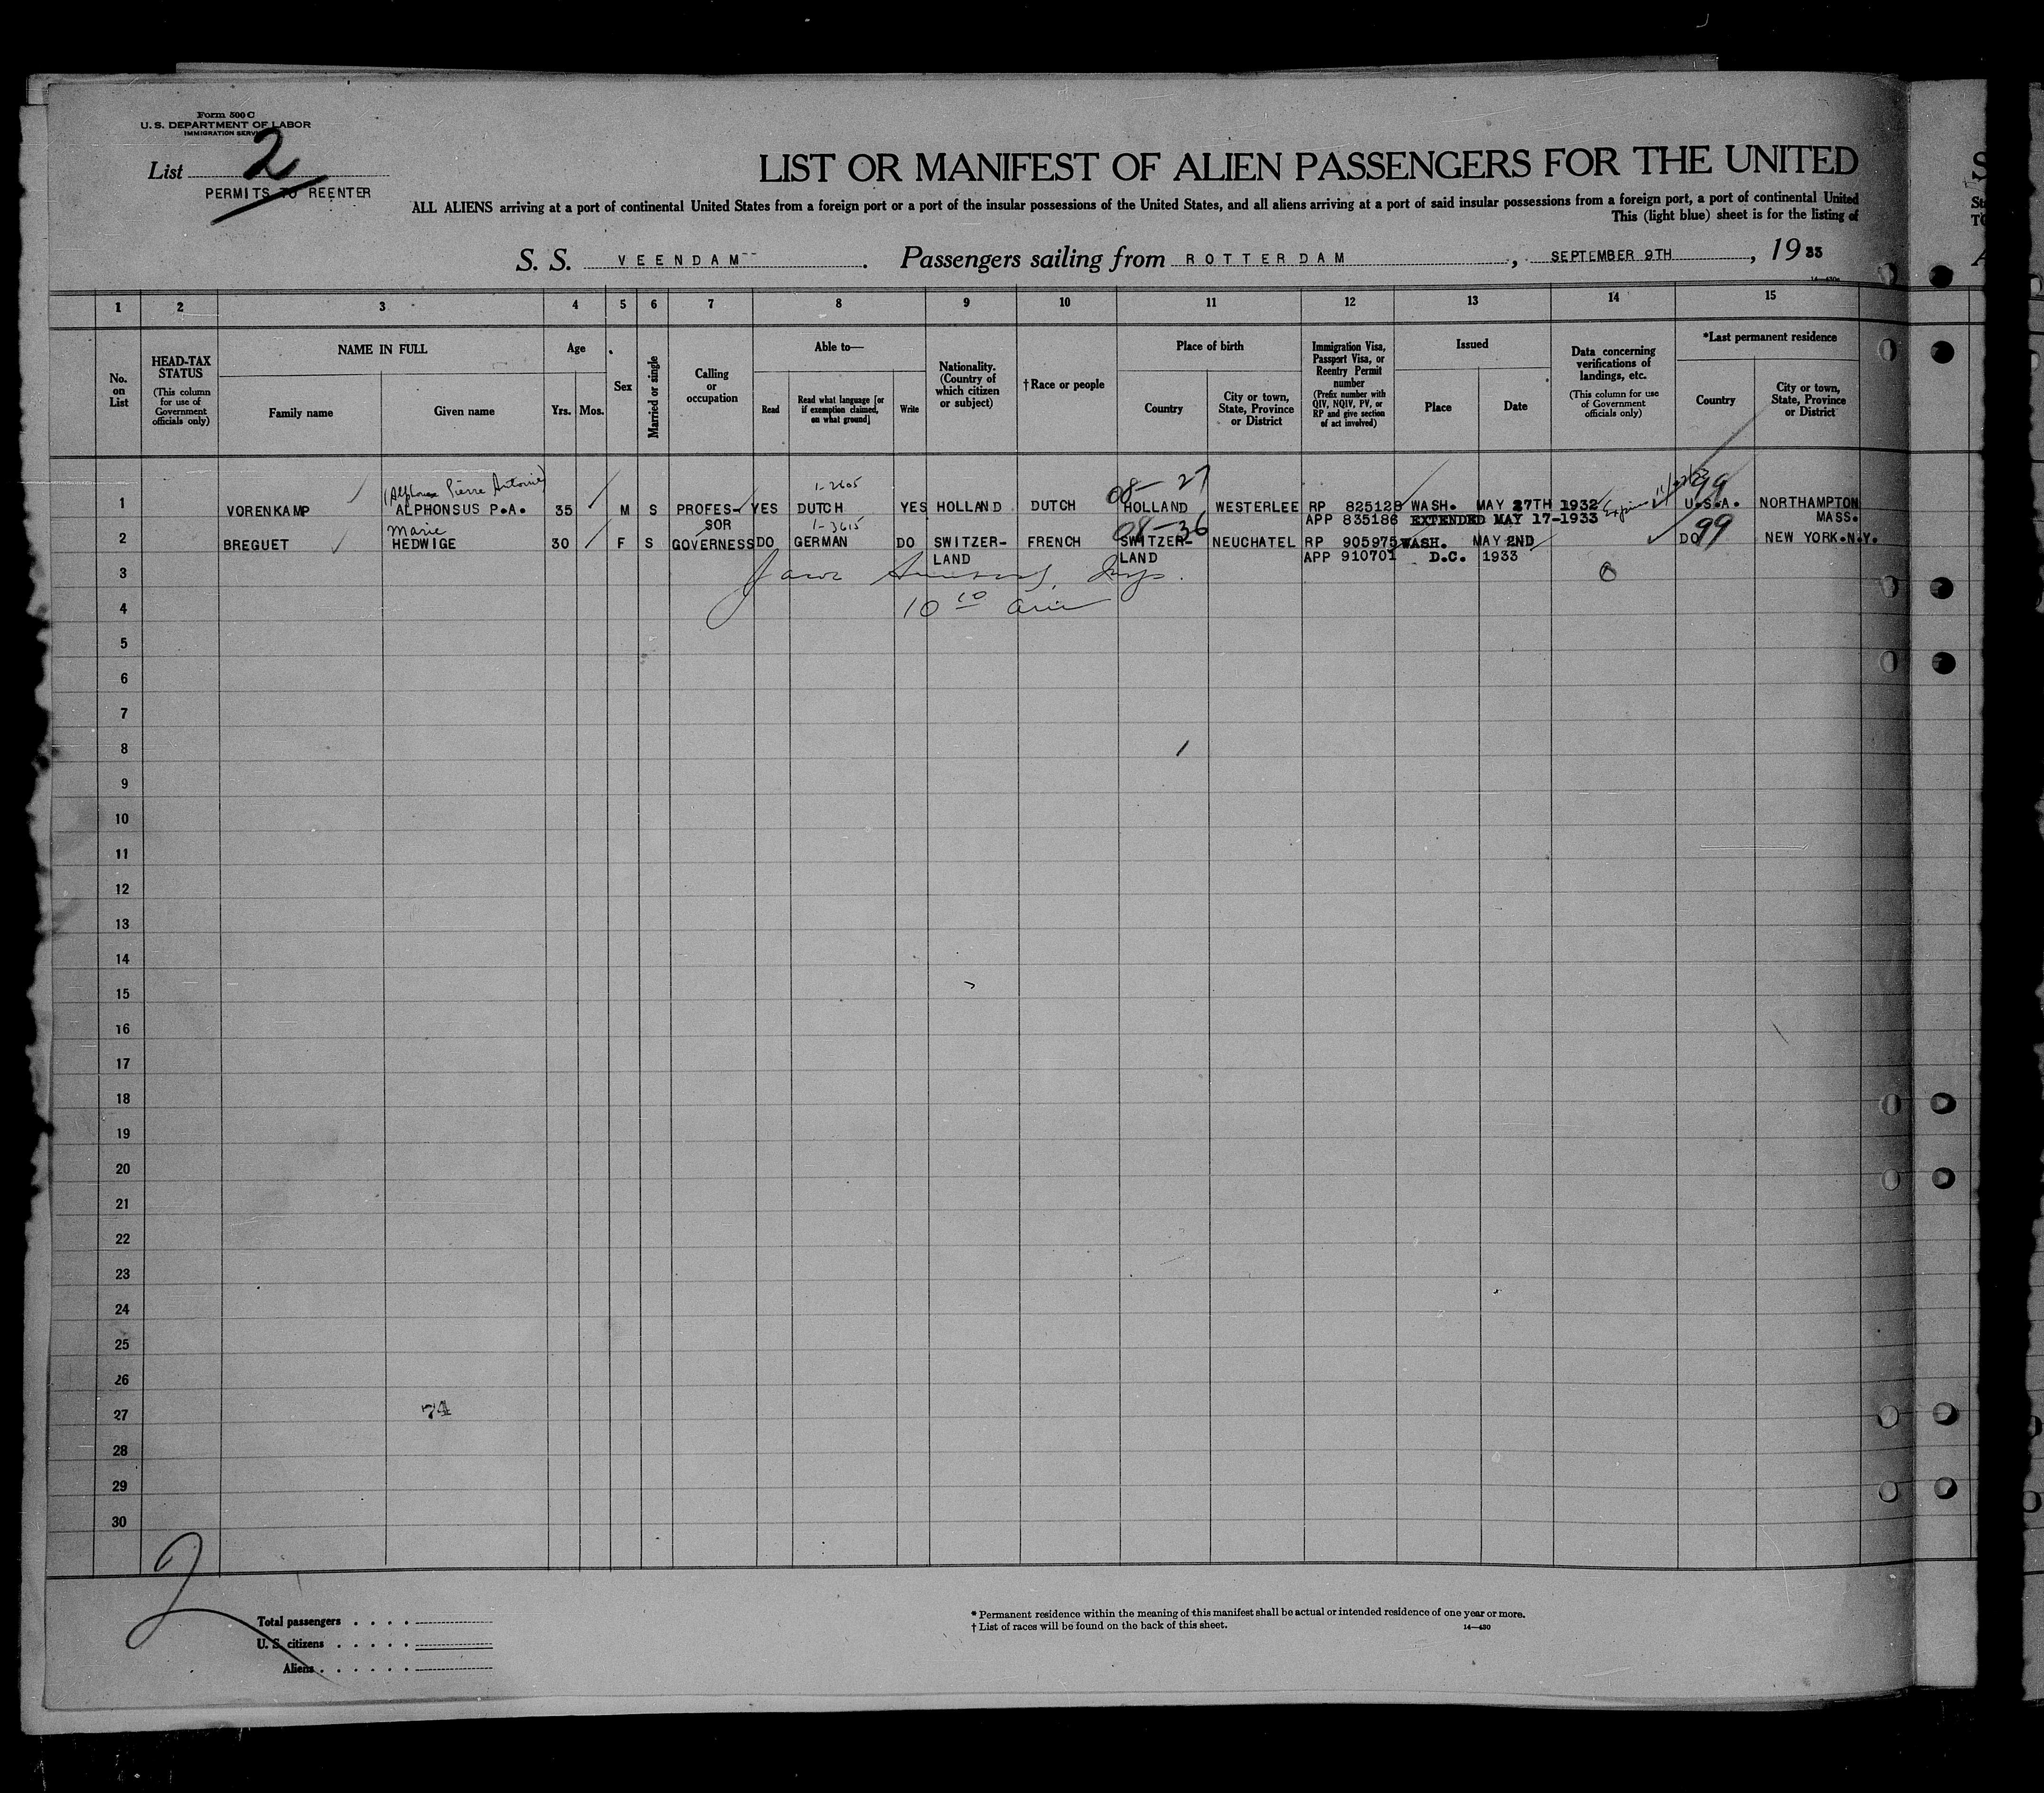 Form 500 C
U. S. DEPARTMENT OF LABOR
IMMIGRATION SERVICE
List 2
PERMITS TO REENTER
LIST OR MANIFEST OF ALIEN PASSENGERS FOR THE UNITED
ALL ALIENS arriving at a port of continental United States from a foreign port or a port of the insular possessions of the United States, and all aliens arriving at a port of said insular possessions from a foreign port, a port of continental United
This (light blue) sheet is for the listing of
S. S. VEENDAM. Passengers sailing from ROTTERDAM, SEPTEMBER 9TH, 1933
1 2 3 4 5 6 7 8 9 10 11 12 13 14 15
No. on List
HEAD-TAX STATUS
(This column for use of Government officials only)
NAME IN FULL
Family name
Given name
Age
Yrs. Mos.
Sex
Married or single
Calling or occupation
Able to—
Read
Read what language [or if exemption claimed, on what ground]
Write
Nationality. (Country of which citizen or subject)
†Race or people
Place of birth
Country
City or town, State, Province or District
Immigration Visa, Passport Visa, or Reentry Permit number
(Prefix number with QIV, NQIV, PV, or RP and give section of act involved)
Issued
Place
Date
Data concerning verifications of landings, etc.
(This column for use of Government officials only)
*Last permanent residence
Country
City or town, State, Province or District
(Alphonse Pierre Antoine) 1-2605 08-27 99
1 VORENKAMP ALPHONSUS P.A. 35 M S PROFES- YES DUTCH YES HOLLAND DUTCH HOLLAND WESTERLEE RP 825128 WASH. MAY 27TH 1932 U.S.A. NORTHAMPTON
SOR APP 835186 EXTENDED MAY 17-1933 MASS.
Marie 1-3615 08-36 99
2 BREGUET HEDWIGE 30 F S GOVERNESS DO GERMAN DO SWITZER- FRENCH SWITZER- NEUCHATEL RP 905975 WASH. MAY 2ND DO NEW YORK.N.Y.
LAND LAND APP 910701 D.C. 1933
3
4 10 10
5
6
7
8
9
10
11
12
13
14
15
16
17
18
19
20
21
22
23
24
25
26
27 74
28
29
30
Total passengers
U. S. citizens
Aliens
* Permanent residence within the meaning of this manifest shall be actual or intended residence of one year or more.
† List of races will be found on the back of this sheet.
14—430